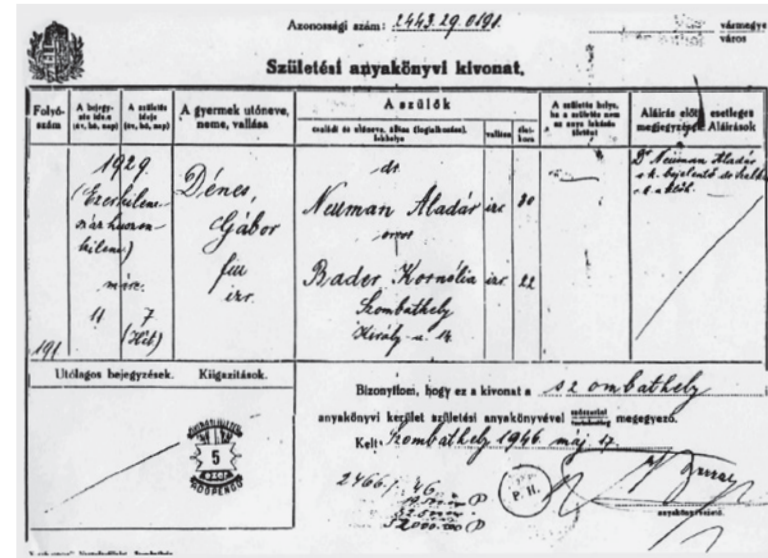 Azonossági szám: 2443.29.0191.
vármegye
város
Születési anyakönyvi kivonat.
Folyó-
szám
A bejegy-
zés ideje
(év, hó, nap)
A születés
ideje
(év, hó, nap)
A gyermek utóneve,
neme, vallása
A szülők
családi és utóneve, állása (foglalkozása),
lakhelye
vallása
élet-
kora
A születés helye,
ha a születés nem
az anya lakásán
történt
Aláírás előtti esetleges
megjegyzések. Aláírások
191.
1929.
(Ezerkilenc-
száz huszon-
kilenc)
márc.
11
7
(Hét)
Dénes,
Gábor
fiu
izr.
dr.
Neuman Aladár
orvos
Bader Kornélia
Szombathely
Király u. 14
izr.
30
izr.
22
Dr Neuman Aladár
s. k. bejelentő
Utólagos bejegyzések. Kiigazítások.
5
ezer
ADÓPENGŐ
Bizonyítom, hogy ez a kivonat a szombathely
anyakönyvi kerület születési anyakönyvével megegyező.
Kelt: Szombathely 1946. máj. 17.
2466/46
P. H.
anyakönyvvezető.